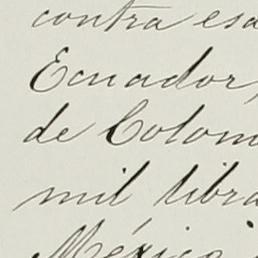 contra esa
Ecuador,
de Colom
mil libra
México